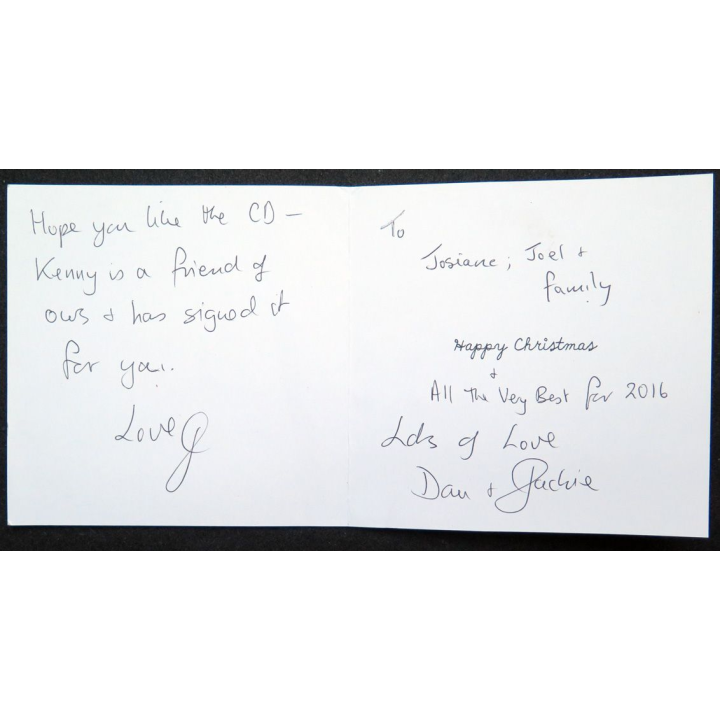 Hope you like the CD –
Kenny is a friend of
ours & has signed it
for you.
Love J
To
Josiane, Joel &
family
Happy Christmas
&
All The Very Best for 2016
Lots of Love
Dan & Jackie